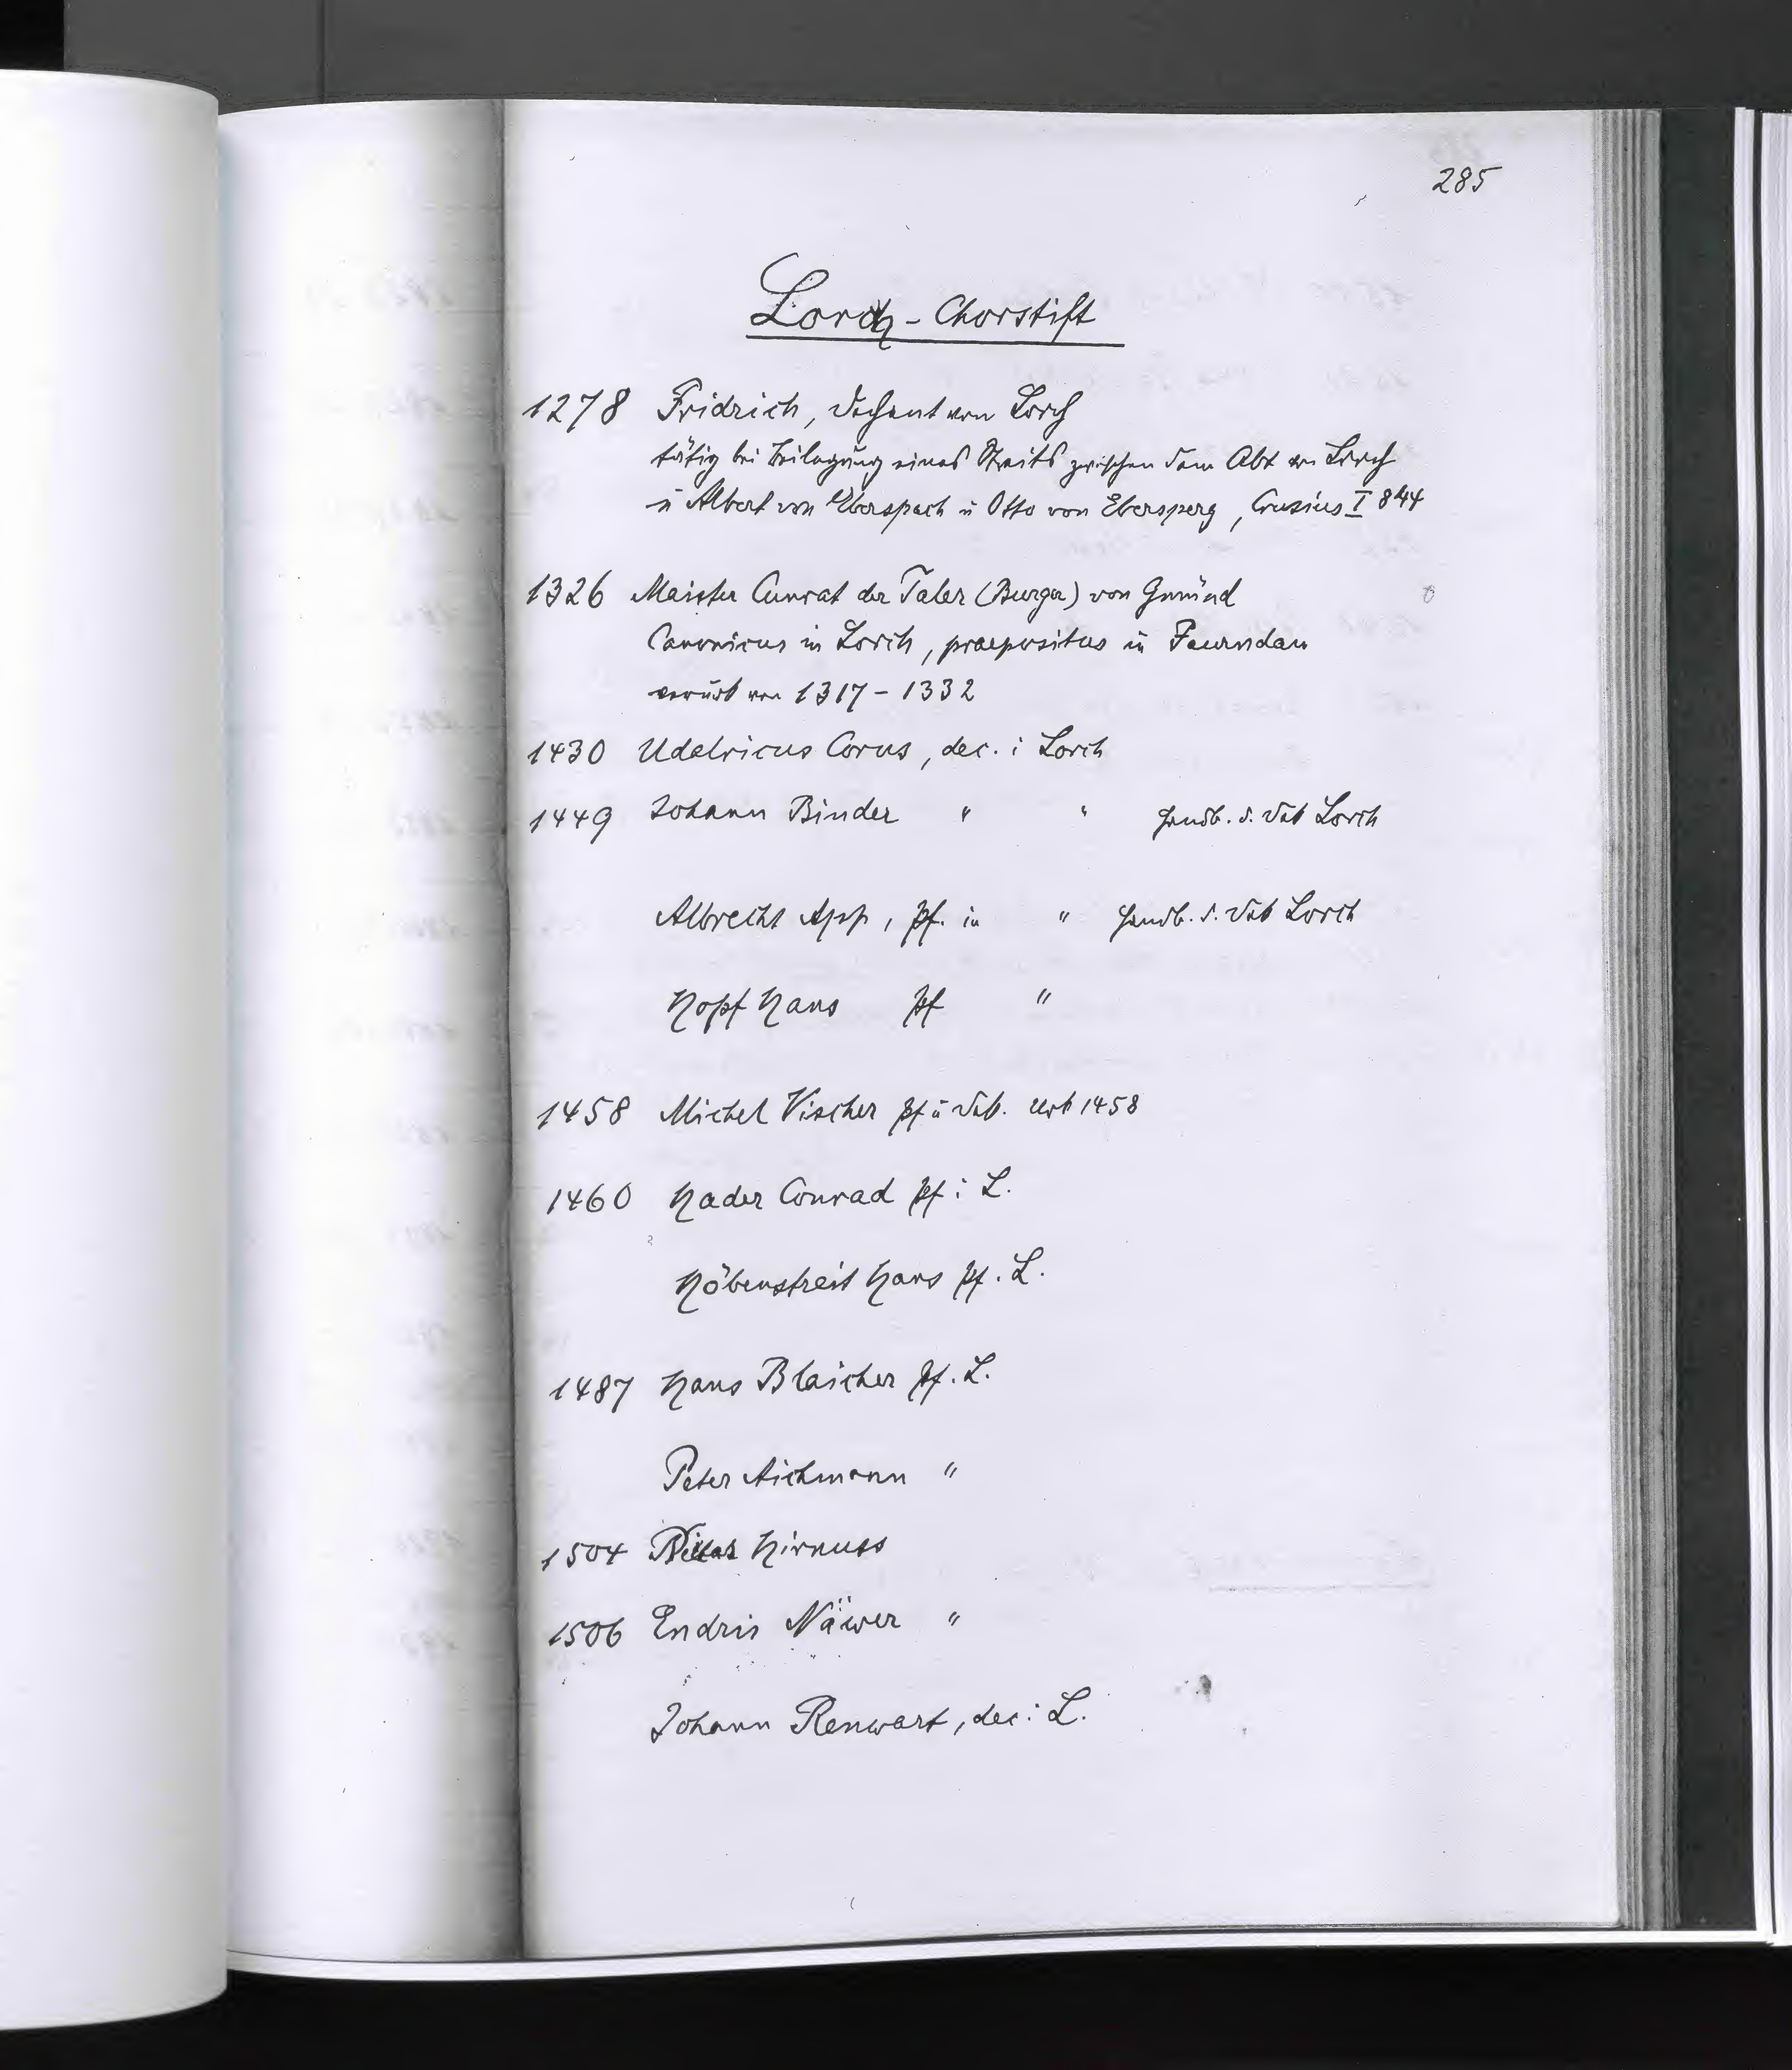 285
Lorch - Chorstift
1278 Fridrich, Dechant von Lorch
tätig bei Beilegung eines Streits zwischen dem Abt von Lorch
u Albert von Eberspach u Otto von Ebersperg, Crusius I 844
1326 Maister Cunrat der Taler (Burger) von Gmünd
Canonicus in Lorch, praepositus in Faurndau
von 1317 - 1332
1430 Udalricus Corus, dec. i Lorch
1449 Johann Binder " " Lorch
Albrecht App, pf. in " Lorch
Hopf Hans pf "
1458 Michel Vischer pf u 1458
1460 Hader Conrad pf i L.
Höbenstreit Hans pf. L.
1487 Hans Blaicher pf. L.
Peter Aichmann "
1504 Hirnuss
1506 Endris Näwer "
Johann Renwart, dec i L.